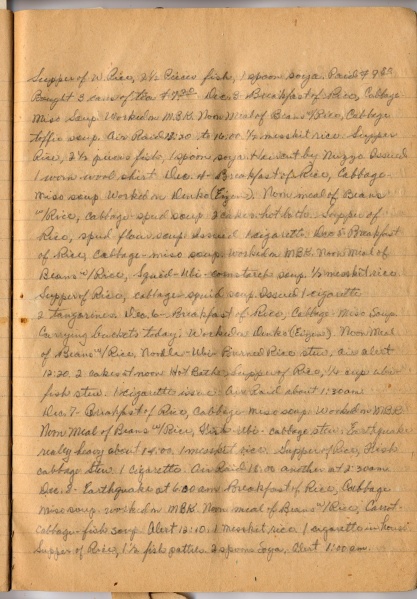 Supper of W. Rice, 2½ Pieces fish, 1 spoon soya. Paid
Bought 3 cans of tea Dec. 3- Breakfast of Rice, Cabbage
Miso Soup. Worked on M.B.K. Noon Meal of Beans w/ Rice, Cabbage
soup. Air Raid 13:30 to 16:00 ½ messkit rice. Supper
Rice, 2½ pieces fish, 1 spoon soya. Issued
1 worn wool shirt. Dec. 4- Breakfast of Rice, Cabbage-
miso soup. Worked on Denko (Eigyo). Noon meal of Beans
w/ Rice, cabbage-spud soup. 2 cakes hot bath. Supper of
Rice, spud flour soup. Issued 1 cigarette. Dec 5- Breakfast
of Rice, Cabbage-miso soup. Worked on M.B.K. Noon Meal of
Beans w/ Rice, Squid-Ubi-cornstarch soup. ½ messkit rice.
Supper of Rice, cabbage-squid soup. Issued 1 cigarette
2 Tangerines. Dec. 6- Breakfast of Rice, Cabbage-Miso Soup
Carrying buckets today. Worked on Denko (Eigyo). Noon Meal
of Beans w/ Rice, Noodle-Ubi-Burned Rice stew, air alert
12:20. 2 cakes at noon Hot Bath. Supper of Rice, ½ cup ubi-
fish stew. 1 cigarette issue. Air Raid about 1:30 am
Dec. 7- Breakfast of Rice, Cabbage-miso soup. Worked on M.B.K.
Noon Meal of Beans w/ Rice, Fish-Ubi-cabbage stew. Earthquake
really heavy about 14:00. 1 messkit rice. Supper of Rice, Fish
cabbage stew. 1 cigarette. Air Raid 18:00 another at 2:30am
Dec. 8- Earthquake at 6:30 am Breakfast of Rice, Cabbage
miso soup. worked on M.B.K. Noon meal of Beans w/ Rice, Carrot-
cabbage-fish soup. Alert 12:10. 1 messkit rice 1 cigarette in house.
Supper of Rice, 1½ fish patties 2 spoons Soya. Alert 11:00 pm.